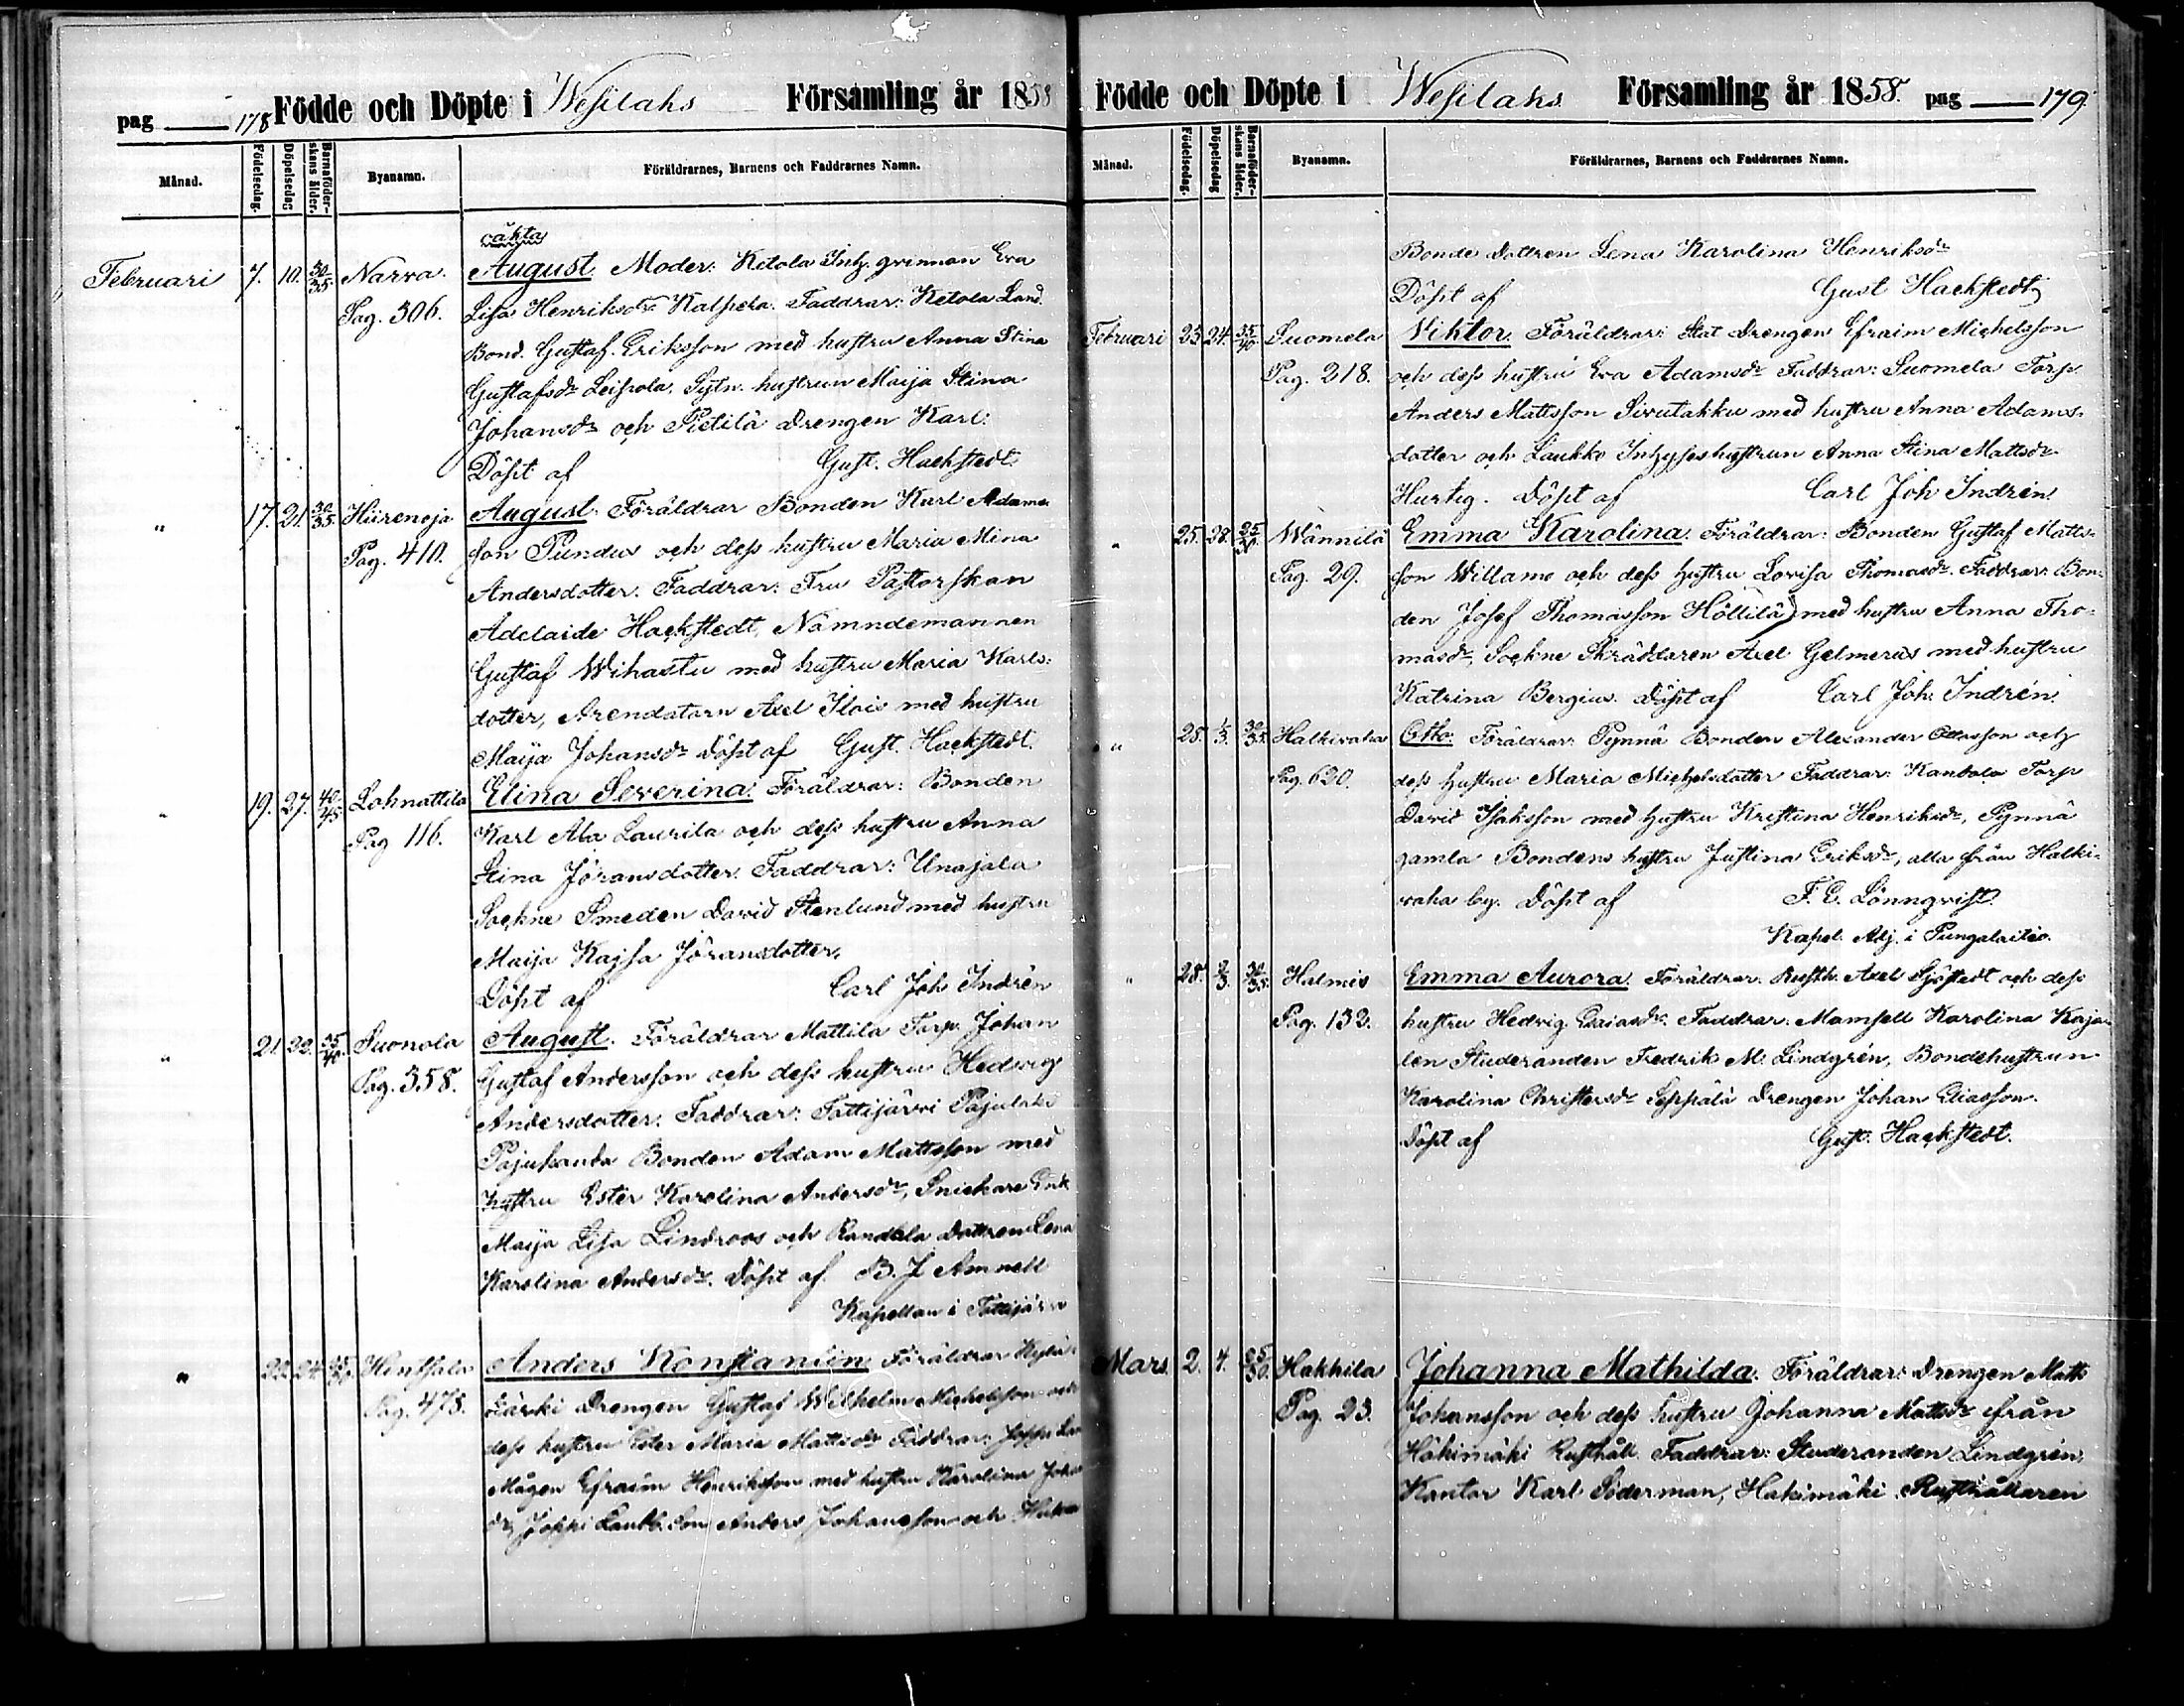 pag 178 Födde och Döpte i Wesilaks Församling år 1858
Månad. Födelsedag. Döpelsedag Barnaföderskans ålder. Byanamn. Föräldrarnes, Barnens och Faddrarnes Namn.
oäkta
Februari 7. 10. 30/35 Narva. August. Moder: Ketola Inh. qvinnan Eva
Pag. 306. Lisa Henriksdr Kalpera. Faddrar: Ketola Land.
Bond. Gustaf Eriksson med hustru Anna Stina
Gustafsdr Leipola, Sytn. hustrun Maija Stina
Johansdr och Pietilä Drengen Karl.
Döpt af Gust. Hackstedt.
" 17. 21. 30/35 Hiirenoja August. Föräldrar Bonden Karl Adams
Pag. 410. son Pundus och dess hustru Maria Mina
Andersdotter. Faddrar: Fru Pastorskan
Adelaide Hackstedt, Nämndemannen
Gustaf Wihastu med hustru Maria Karls-
dotter, Arendatorn Axel Ilois med hustru
Maija Johansdr Döpt af Gust. Hackstedt.
" 19. 27. 40/45 Lohnattila Elina Severina. Föräldrar: Bonden
Pag 116. Karl Ala Laurila och dess hustru Anna
Stina Jöransdotter. Faddrar: Unajala
Sockne Smeden David Stenlund med hustru
Maija Kajsa Jöransdotter.
Döpt af Carl Joh Indrén
" 21. 22. 35/40 Suonola August. Föräldrar Mattila Torp. Johan
Pag. 358. Gustaf Andersson och dess hustru Hedvig
Andersdotter. Faddrar: Tottijärvi Pajulaks
Pajukanda Bonden Adam Mattsson med
hustru Ester Karolina Andersdr, Snickare Enk
Maija Lisa Lindroos och Randala Dottren Lena
Karolina Andersdr. Döpt af B. J Amnell
Kapellan i Tottijärvi
" 22. 24. Hinsala Anders Konstantin Föräldrar
Pag. 478. Drengen Gustaf Wilhelm Michelsson och
dess hustru Ester Maria Mattsdr Faddrar: Joppi
Mågen Efraim Henriksson med hustru Karolina Johans
dr, Joppi Landb. Son Anders Johansson och
Födde och Döpte i Wesilaks Församling år 1858. pag 179
Månad. Födelsedag. Döpelsedag Barnaföderskans ålder. Byanamn. Föräldrarnes, Barnens och Faddrarnes Namn.
Bonde Dottren Lena Karolina Henriksdr
Döpt af Gust Hackstedt
Februari 23 24. 35/40 Suomela Viktor. Föräldrar: Stat Drengen Efraim Michelsson
Pag. 218. och dess hustru Eva Adamsdr Faddrar: Suomela Torp.
Anders Mattsson Sivulakku med hustru Anna Adams-
dotter och Laukko Inhyseshustrun Anna Stina Mattsdr
Hurtig. Döpt af Carl Joh Indrén
" 25. 28. 25/30 Wännilä Emma Karolina. Föräldrar: Bonden Gustaf Matts-
Pag. 29. son Willamo och dess hustru Lovisa Thomasdr. Faddrar: Bon-
den Josef Thomasson Höllilä med hustru Anna Tho-
masdr, Sockne Skräddaren Axel Gelmerus med hustru
Katrina Bergius. Döpt af Carl Joh. Indrén.
" 28. 1/3. 30/35. Halkivaha Otto. Föräldrar: Pynnä Bonden Alexander Ottosson och
Pag. 620. dess hustru Maria Michelsdotter Faddrar: Kantola Torp
David Isaksson med hustru Kristina Henriksdr, Pynnä
gamla Bondens hustru Justina Eriksdr, alla från Halki-
vaha by. Döpt af F. E. Lönnqvist.
Kapel. Adj. i Pungalaitio.
" 28. 2/3. 30/35. Halmis Emma Aurora. Föräldrar: Rusth. Axel Sjöstedt och dess
Pag. 132. hustru Hedvig Esaiasdr. Faddrar: Mamsell Karolina Kaja-
len Studeranden Fredrik M. Lindgrén, Bondehustrun
Karolina Christersdr Seppälä Drengen Johan Eliasson.
Döpt af Gust. Hackstedt.
Mars. 2. 4. 25/30. Hakkila Johanna Mathilda. Föräldrar: Drengen Matts
Pag. 23. Johansson och dess hustru Johanna Mattsdr från
Häkimäki Rusthåll. Faddrar: Studeranden Lindgrén,
Kantor Karl Söderman, Hakimäki Rusthållaren